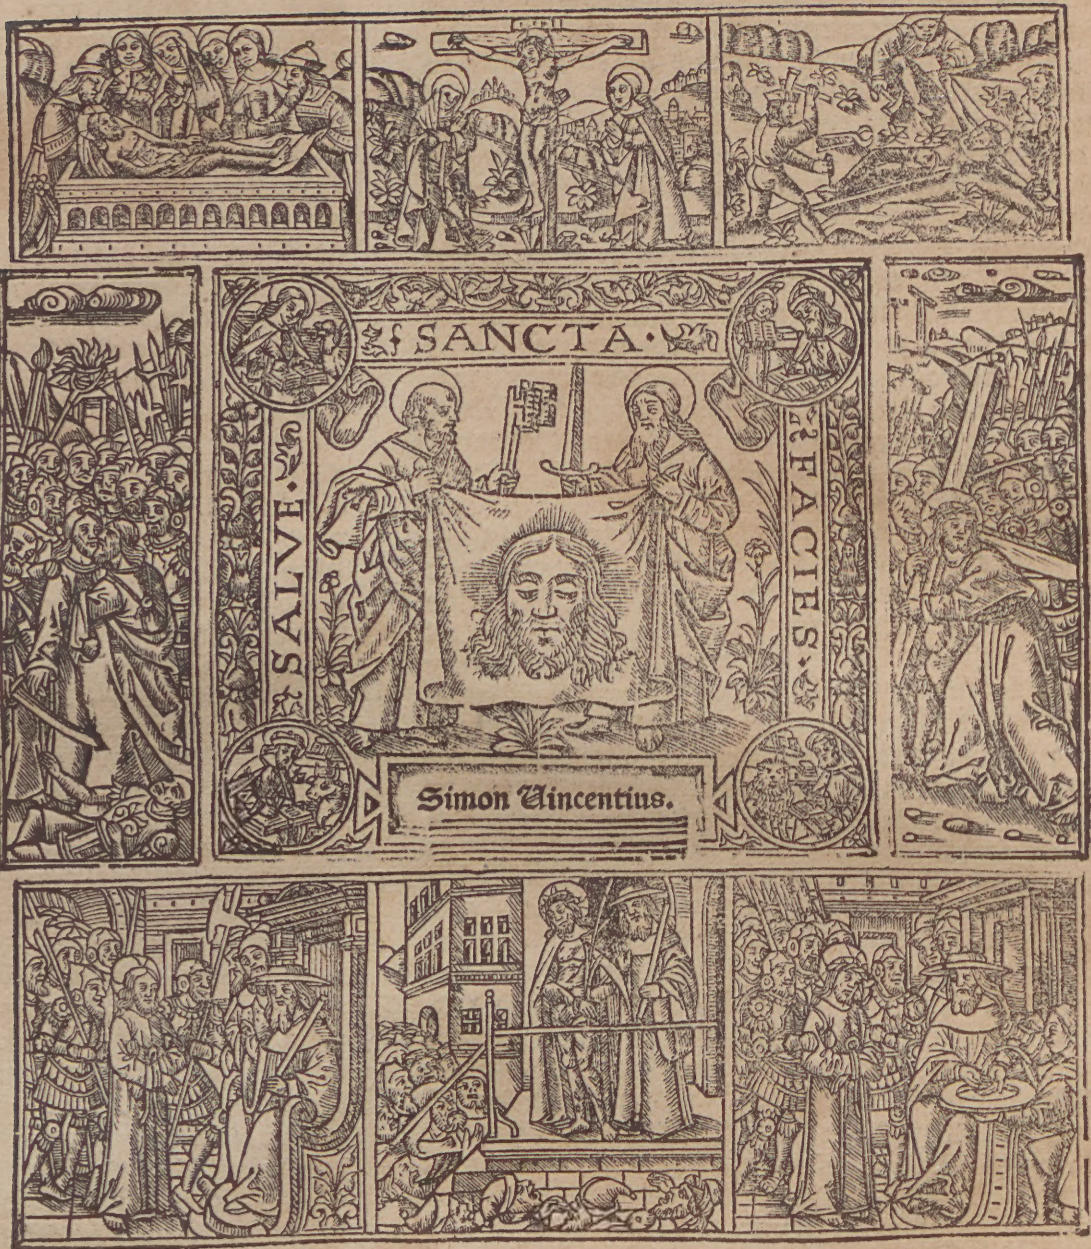 SALVE ·
SANCTA ·
FACIES ·
Simon Vincentius.